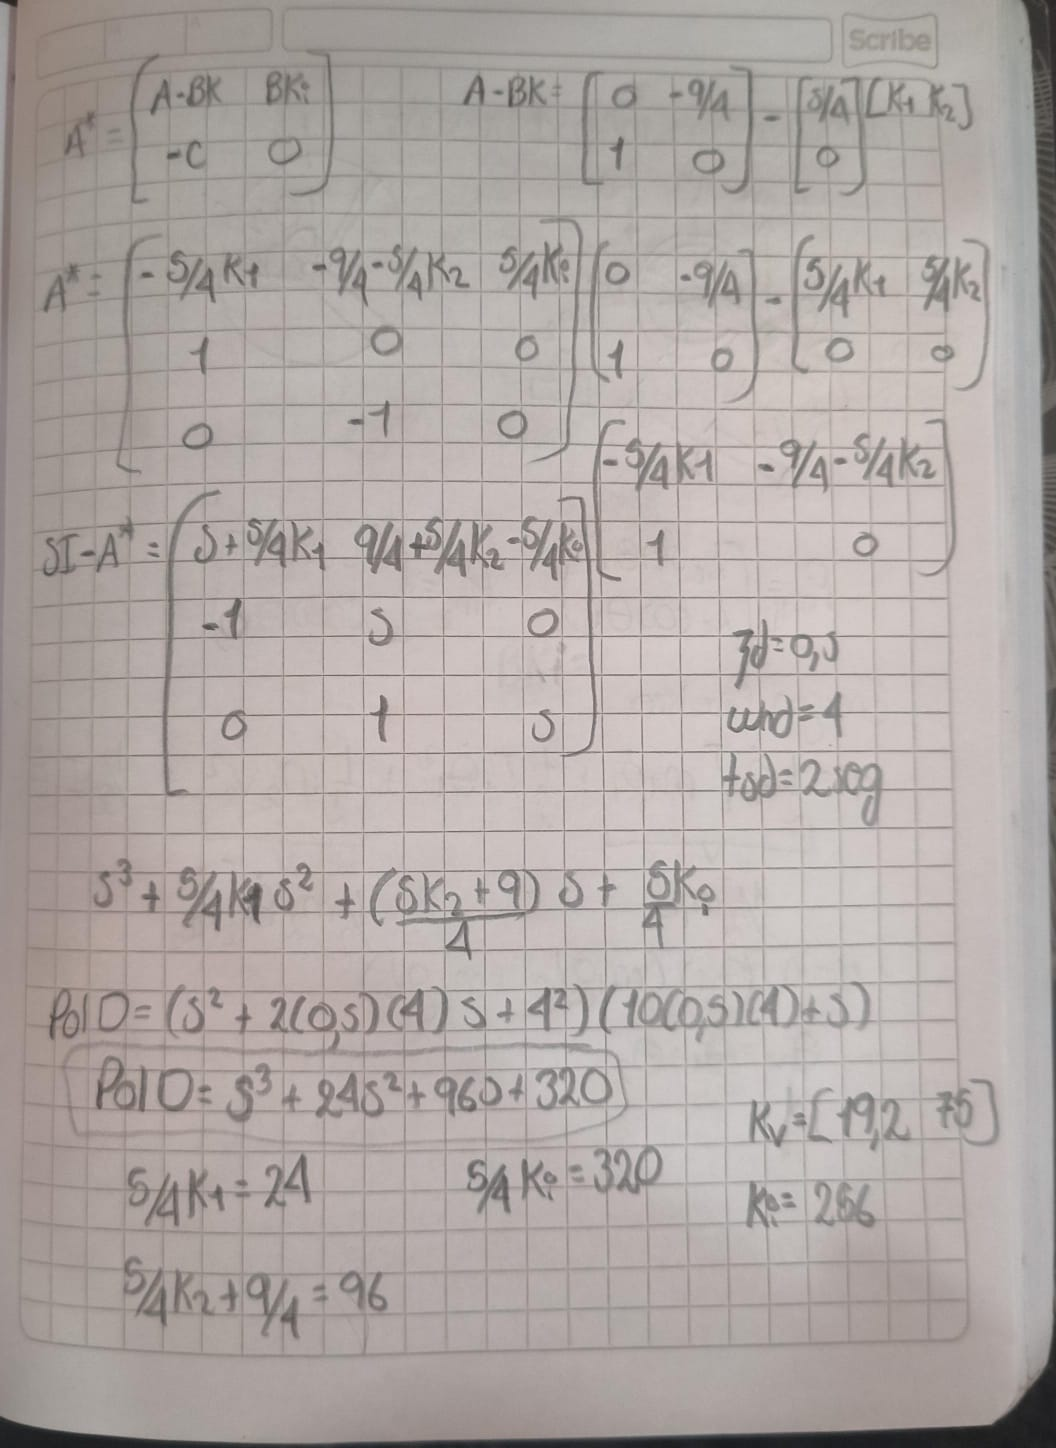 Scribe
A* = [A-BK BKi; -C 0]
A-BK = [0 -9/4; 1 0] - [5/4; 0] [K1 K2]
A* = [-5/4K1 -9/4-5/4K2 5/4Ki; 1 0 0; 0 -1 0]
[0 -9/4; 1 0] - [5/4K1 5/4K2; 0 0]
[-5/4K1 -9/4-5/4K2; 1 0]
SI-A* = [S+5/4K1 9/4+5/4K2 -5/4Ki; -1 S 0; 0 1 S]
ζd=0,5
wnd=4
tsd=2seg
S³ + 5/4K1S² + (5K2+9)/4 S + 5Ki/4
PolD=(S²+2(0,5)(4)S+4²)(10(0,5)(4)+S)
PolD= S³+24S²+96S+320
Kv=[19,2 75]
5/4K1=24
5/4Ki=320
Ki= 256
5/4K2+9/4=96